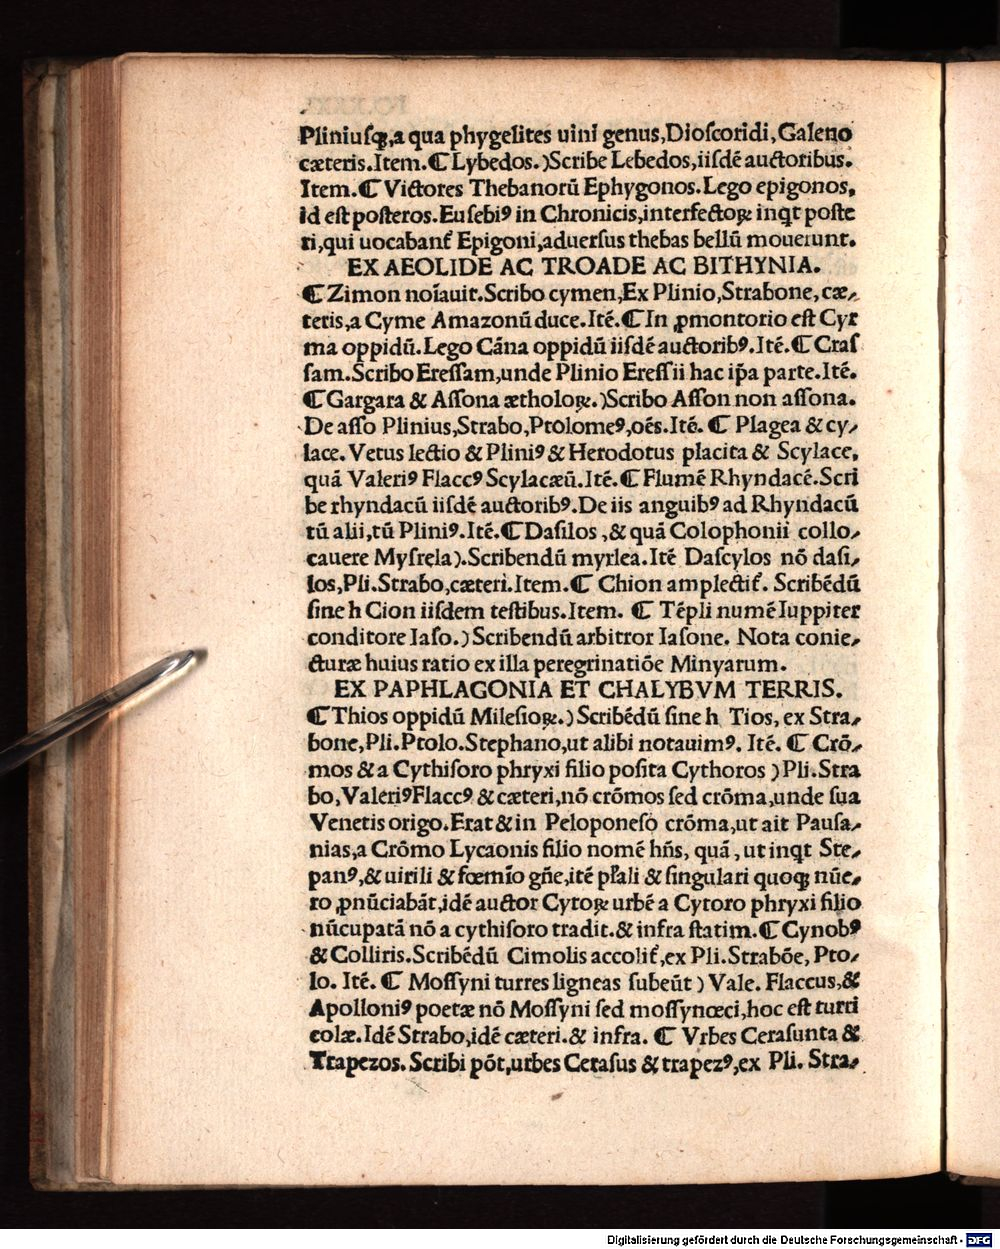 Pliniuſqꝫ,a qua phygelites uini genus,Dioſcoridi,Galeno
cæteris.Item.¶ Lybedos.)Scribe Lebedos,iiſdē auctoribus.
Item.¶ Victores Thebanorū Ephygonos.Lego epigonos,
id eſt poſteros.Euſebiꝰ in Chronicis,interfectoꝝ inqt poſte
ri,qui uocabant᷑ Epigoni,aduerſus thebas bellū mouerunt.
EX AEOLIDE AC TROADE AC BITHYNIA.
¶ Zimon noīauit.Scribo cymen,Ex Plinio,Strabone,cæ-
teris,a Cyme Amazonū duce.Itē.¶ In ꝓmontorio eſt Cyr
ma oppidū.Lego Cāna oppidū iiſdē auctoribꝰ.Itē.¶ Craſ
ſam.Scribo Ereſſam,unde Plinio Ereſſii hac ip̄a parte.Itē.
¶ Gargara & Aſſona ætholoꝝ.)Scribo Aſſon non aſſona.
De aſſo Plinius,Strabo,Ptolomeꝰ,oēs.Itē. ¶ Plagea & cy-
lace. Vetus lectio & Pliniꝰ & Herodotus placita & Scylace,
quā Valeriꝰ Flaccꝰ Scylacæū.Itē.¶ Flumē Rhyndacē.Scri
be rhyndacū iiſdē auctoribꝰ.De iis anguibꝰ ad Rhyndacū
tū alii,tū Pliniꝰ.Itē.¶ Daſilos ,& quā Colophonii collo-
cauere Myſrela).Scribendū myrlea.Itē Daſcylos nō daſi-
los,Pli.Strabo,cæteri.Item.¶ Chion amplectit᷑. Scribēdū
ſine h Cion iiſdem teſtibus.Item. ¶ Tēpli numē Iuppiter
conditore Iaſo.)Scribendū arbitror Iaſone. Nota conie-
cturæ huius ratio ex illa peregrinatiōe Minyarum.
EX PAPHLAGONIA ET CHALYBVM TERRIS.
¶ Thios oppidū Mileſioꝝ.)Scribēdū ſine h Tios, ex Stra-
bone,Pli.Ptolo.Stephano,ut alibi notauimꝰ. Itē. ¶ Crō-
mos & a Cythiſoro phryxi filio poſita Cythoros )Pli.Stra
bo,ValeriꝰFlaccꝰ & cæteri,nō crōmos ſed crōma,unde ſua
Venetis origo.Erat & in Peloponeſo crōma,ut ait Pauſa-
nias,a Crōmo Lycaonis filio nomē hn̄s, quā , ut inqt Ste-
panꝰ,& uirili & fœmīo gn̄e,itē pl̄ali & ſingulari quoqꝫ nūe-
ro ꝓnūciabāt,idē auctor Cytoꝝ urbē a Cytoro phryxi filio
nūcupatā nō a cythiſoro tradit.& infra ſtatim.¶ Cynobꝰ
& Colliris.Scribēdū Cimolis accolit᷑,ex Pli.Strabōe, Pto-
lo. Itē. ¶ Moſſyni turres ligneas ſubeūt ) Vale. Flaccus,&
Apolloniꝰ poetæ nō Moſſyni ſed moſſynœci,hoc eſt turri
colæ.Idē Strabo,idē cæteri.& infra. ¶ Vrbes Ceraſunta &
Trapezos. Scribi pōt,urbes Ceraſus & trapezꝰ,ex Pli. Stra-
Digitalisierung gefördert durch die Deutsche Forschungsgemeinschaft - DFG